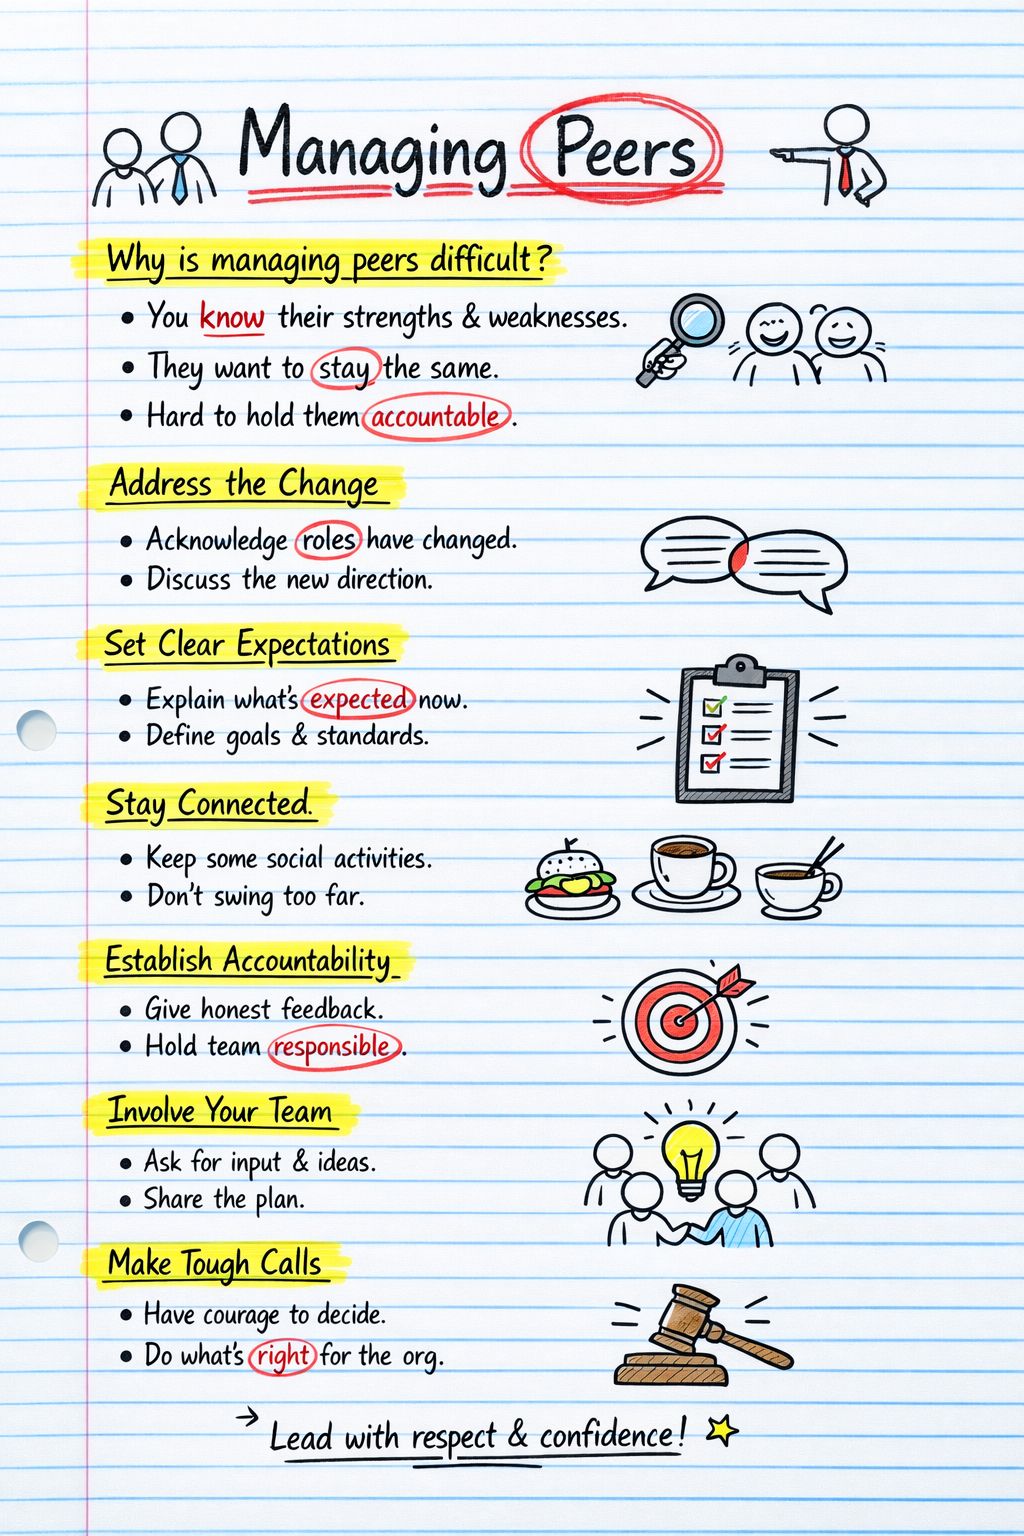 Managing Peers
Why is managing peers difficult?
• You know their strengths & weaknesses.
• They want to stay the same.
• Hard to hold them accountable.
Address the Change
• Acknowledge roles have changed.
• Discuss the new direction.
Set Clear Expectations
• Explain what's expected now.
• Define goals & standards.
Stay Connected.
• Keep some social activities.
• Don't swing too far.
Establish Accountability
• Give honest feedback.
• Hold team responsible.
Involve Your Team
• Ask for input & ideas.
• Share the plan.
Make Tough Calls
• Have courage to decide.
• Do what's right for the org.
→ Lead with respect & confidence!